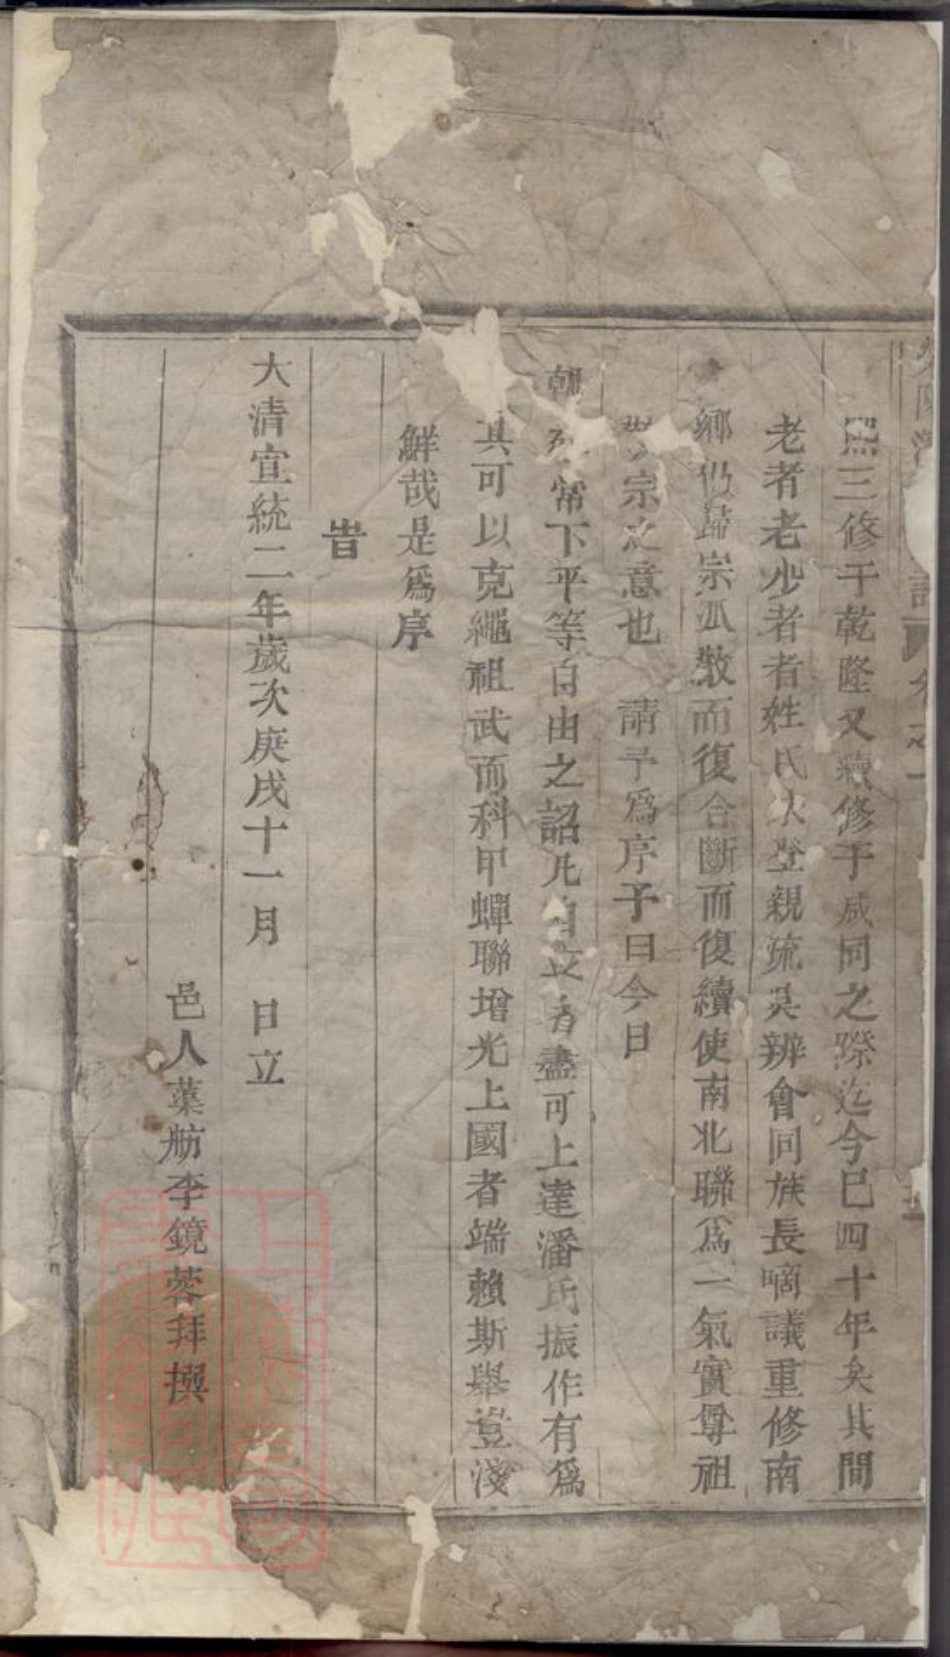 熙三修于乾隆又續修于咸同之際迄今已四十年矣其間
老者老少者者姓氏次登親疏吳辨會同族長嘀議重修南
鄉仍歸宗派散而復合斷而復續使南北聯爲一氣實尊祖
宗之意也 請予爲序予曰今日
朝 常下平等自由之詔凡自立者盡可上達潘氏振作有爲
其可以克繩祖武而科甲蟬聯增光上國者端賴斯舉豈淺
鮮哉是爲序
旹
大清宣統二年歲次庚戌十一月 日立
邑人葉舫李鏡蓉拜撰